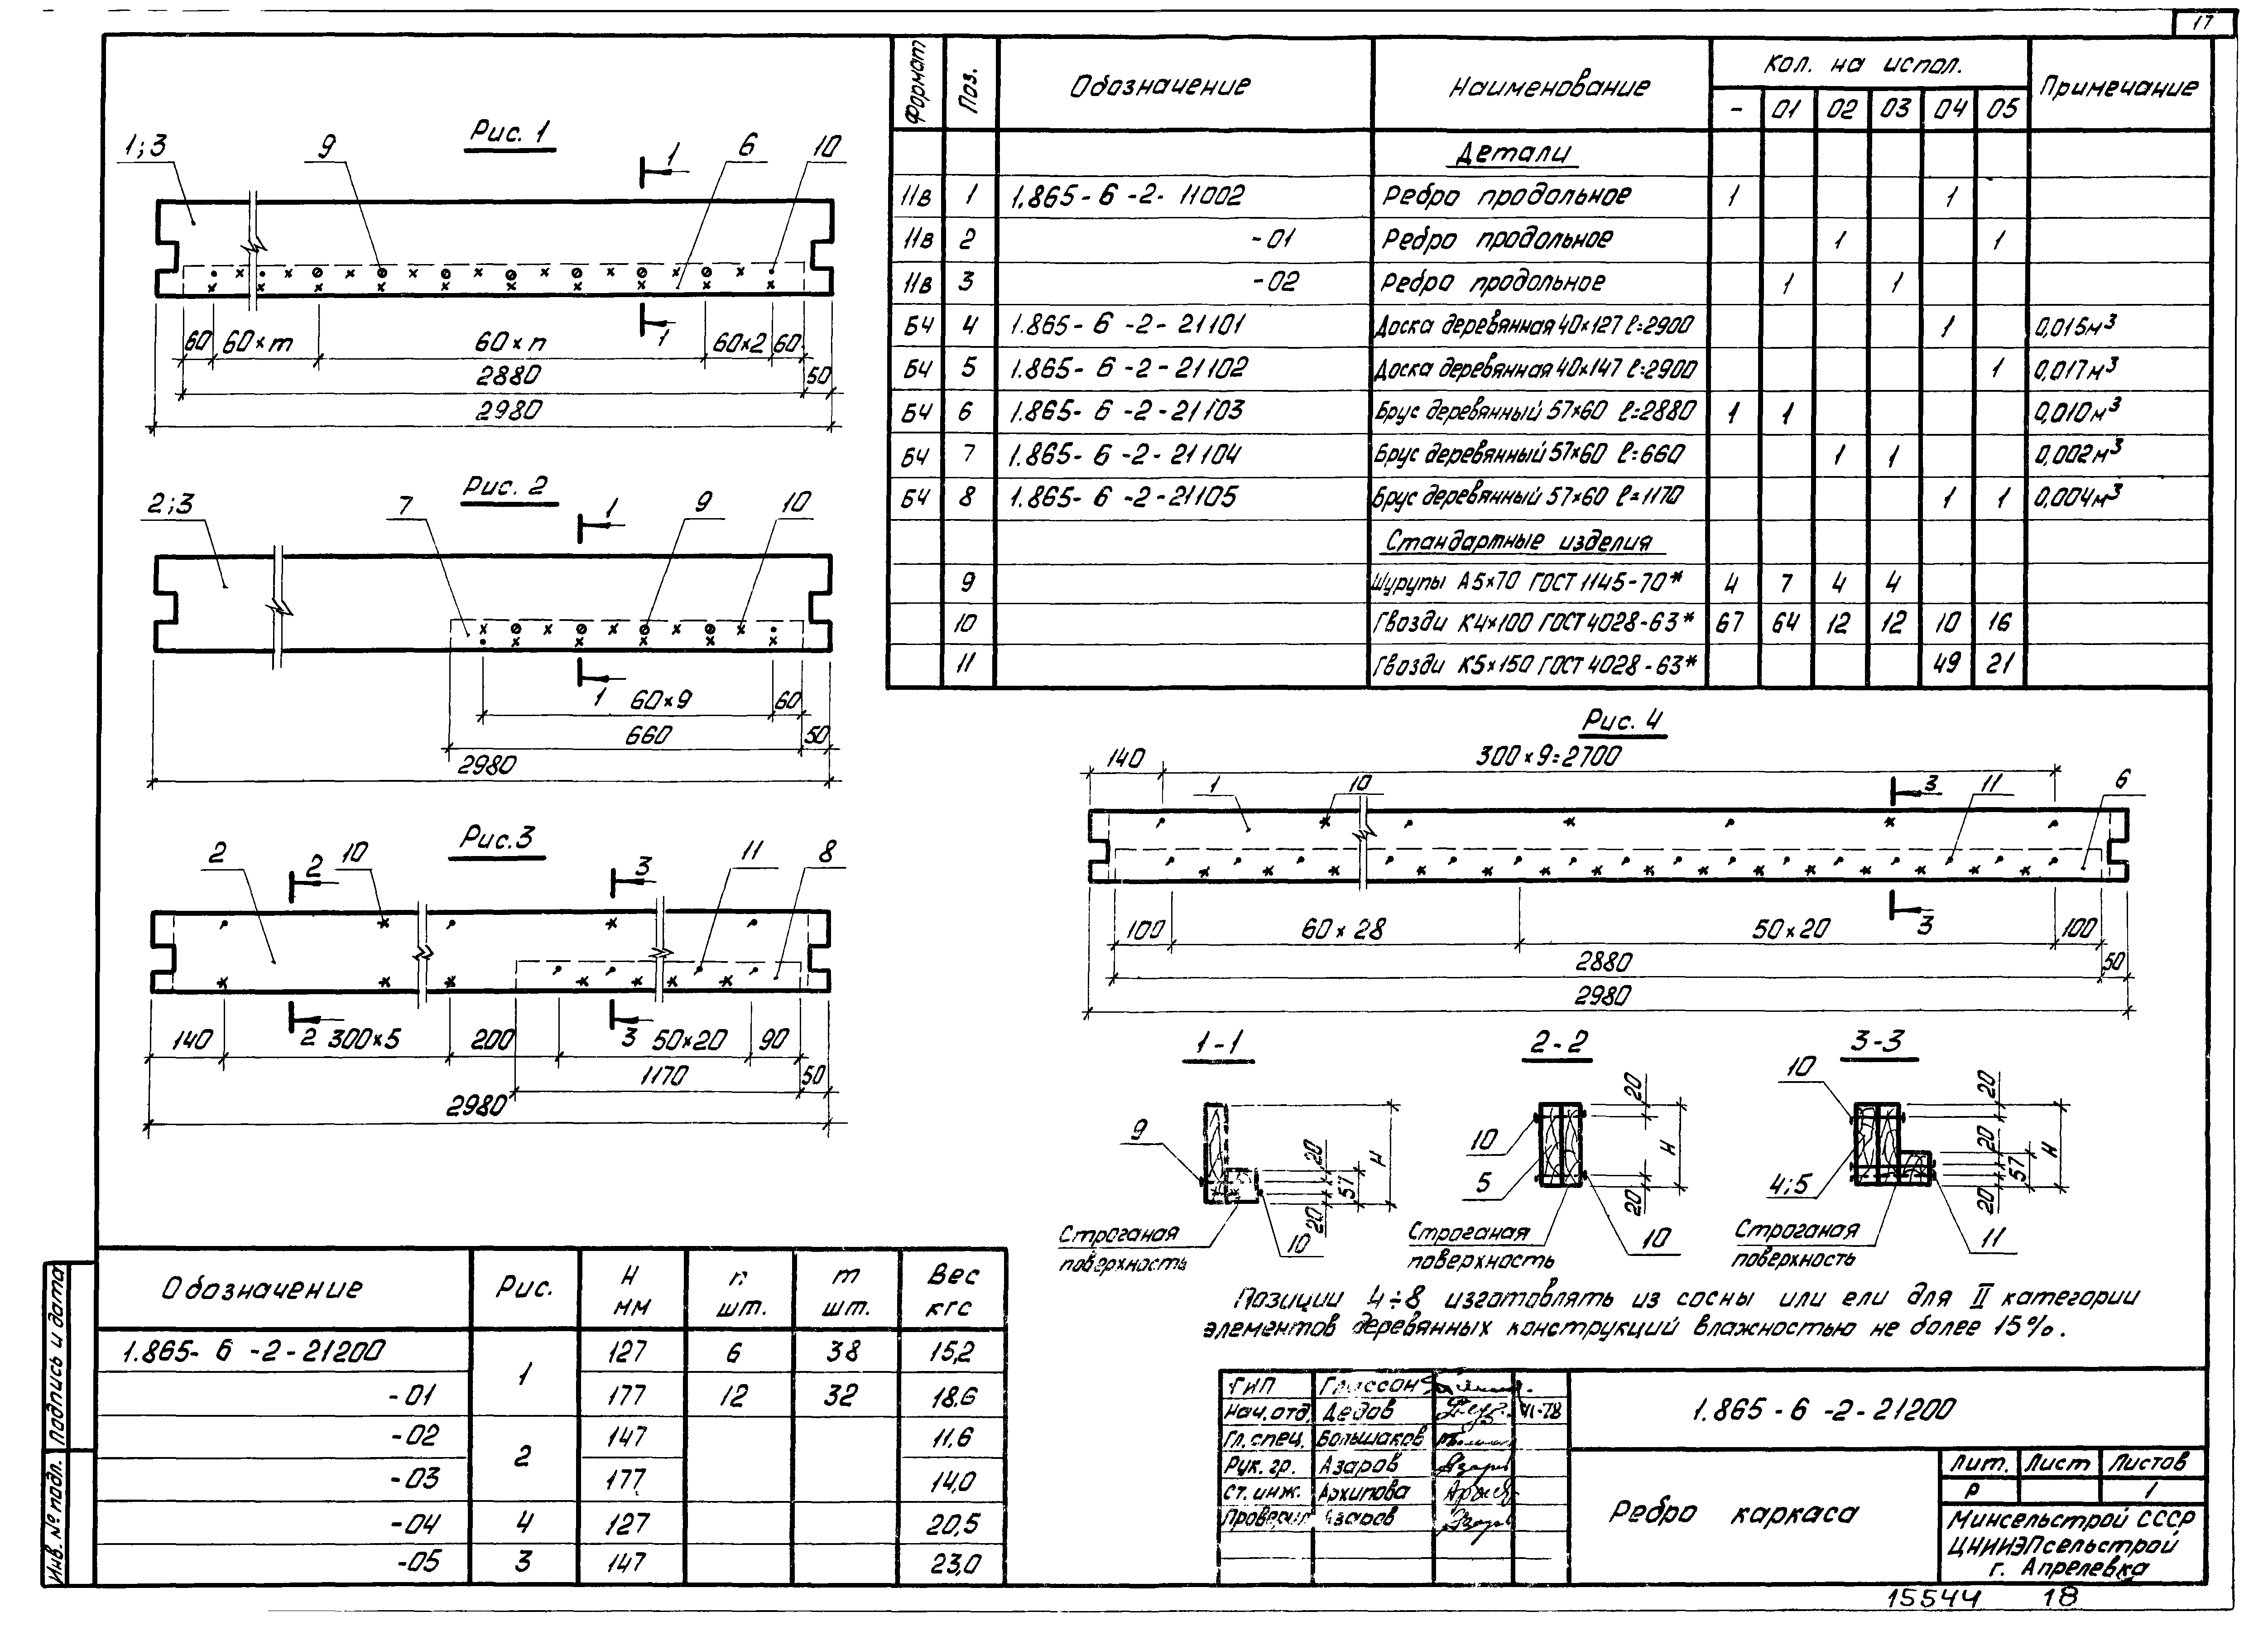 17
Рис. 1
1;3 9 1 6 10
60 60×m 60×n 1 60×2 60
2880 50
2980
Рис. 2
2;3 7 1 9 10
1 60×9 60
660 50
2980
Рис. 3
2 2 10 3 11 8
140 2 300×5 200 3 50×20 90
1170 50
2980
Формат Поз. Обозначение Наименование Кол. на испол. Примечание
- 01 02 03 04 05
Детали
11в 1 1.865-6-2-11002 Ребро продольное 1 1
11в 2 -01 Ребро продольное 1 1
11в 3 -02 Ребро продольное 1 1
БЧ 4 1.865-6-2-21101 Доска деревянная 40×127 ℓ=2900 1 0,015м³
БЧ 5 1.865-6-2-21102 Доска деревянная 40×147 ℓ=2900 1 0,017м³
БЧ 6 1.865-6-2-21103 Брус деревянный 57×60 ℓ=2880 1 1 0,010м³
БЧ 7 1.865-6-2-21104 Брус деревянный 57×60 ℓ=660 1 1 0,002м³
БЧ 8 1.865-6-2-21105 Брус деревянный 57×60 ℓ=1170 1 1 0,004м³
Стандартные изделия
9 Шурупы А5×70 ГОСТ 1145-70* 4 7 4 4
10 Гвозди К4×100 ГОСТ 4028-63* 67 64 12 12 10 16
11 Гвозди К5×150 ГОСТ 4028-63* 49 21
Рис. 4
140 300×9=2700
1 10 3 11 6
100 60×28 50×20 3 100
2880 50
2980
1-1
9 20 57 20 Н
10
Строганая
поверхность
2-2
10 5 20 Н 20
10
Строганая
поверхность
3-3
10 4;5 20 20 57 20 Н
11
Строганая
поверхность
Позиции 4÷8 изготовлять из сосны или ели для II категории
элементов деревянных конструкций влажностью не более 15%.
Обозначение Рис. Н мм n шт. m шт. Вес кгс
1.865-6-2-21200 1 127 6 38 15,2
-01 177 12 32 18,6
-02 2 147 11,6
-03 177 14,0
-04 4 127 20,5
-05 3 147 23,0
Подпись и дата
Инв. № подл.
ГИП Глассон
Нач. отд. Дедов VI-78
Гл. спец. Большаков
Рук. гр. Азаров
Ст. инж. Архипова
Проверил Азаров
1.865-6-2-21200
Ребро каркаса
Лит. Лист Листов
Р 1
Минсельстрой СССР
ЦНИИЭПсельстрой
г. Апрелевка
15544 18